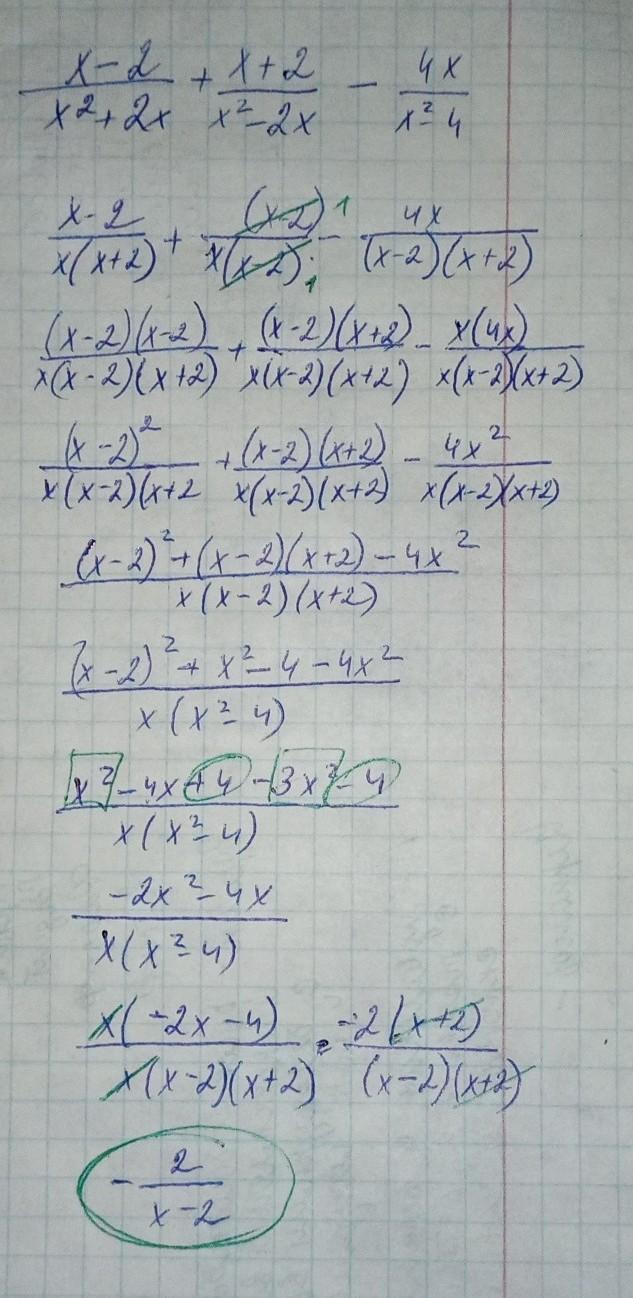 (x-2)/(x²+2x) + (x+2)/(x²-2x) - 4x/(x²-4)
(x-2)/(x(x+2)) + (x-2)1/(x(x-2)1) - 4x/((x-2)(x+2))
(x-2)(x-2)/(x(x-2)(x+2)) + (x-2)(x+2)/(x(x-2)(x+2)) - x(4x)/(x(x-2)(x+2))
(x-2)²/(x(x-2)(x+2 + (x-2)(x+2)/(x(x-2)(x+2)) - 4x²/(x(x-2)(x+2))
((x-2)²+(x-2)(x+2)-4x²)/(x(x-2)(x+2))
((x-2)²+x²-4-4x²)/(x(x²-4))
(x²-4x+4-3x²-4)/(x(x²-4))
(-2x²-4x)/(x(x²-4))
x(-2x-4)/(x(x-2)(x+2)) = -2(x+2)/((x-2)(x+2))
-2/(x-2)